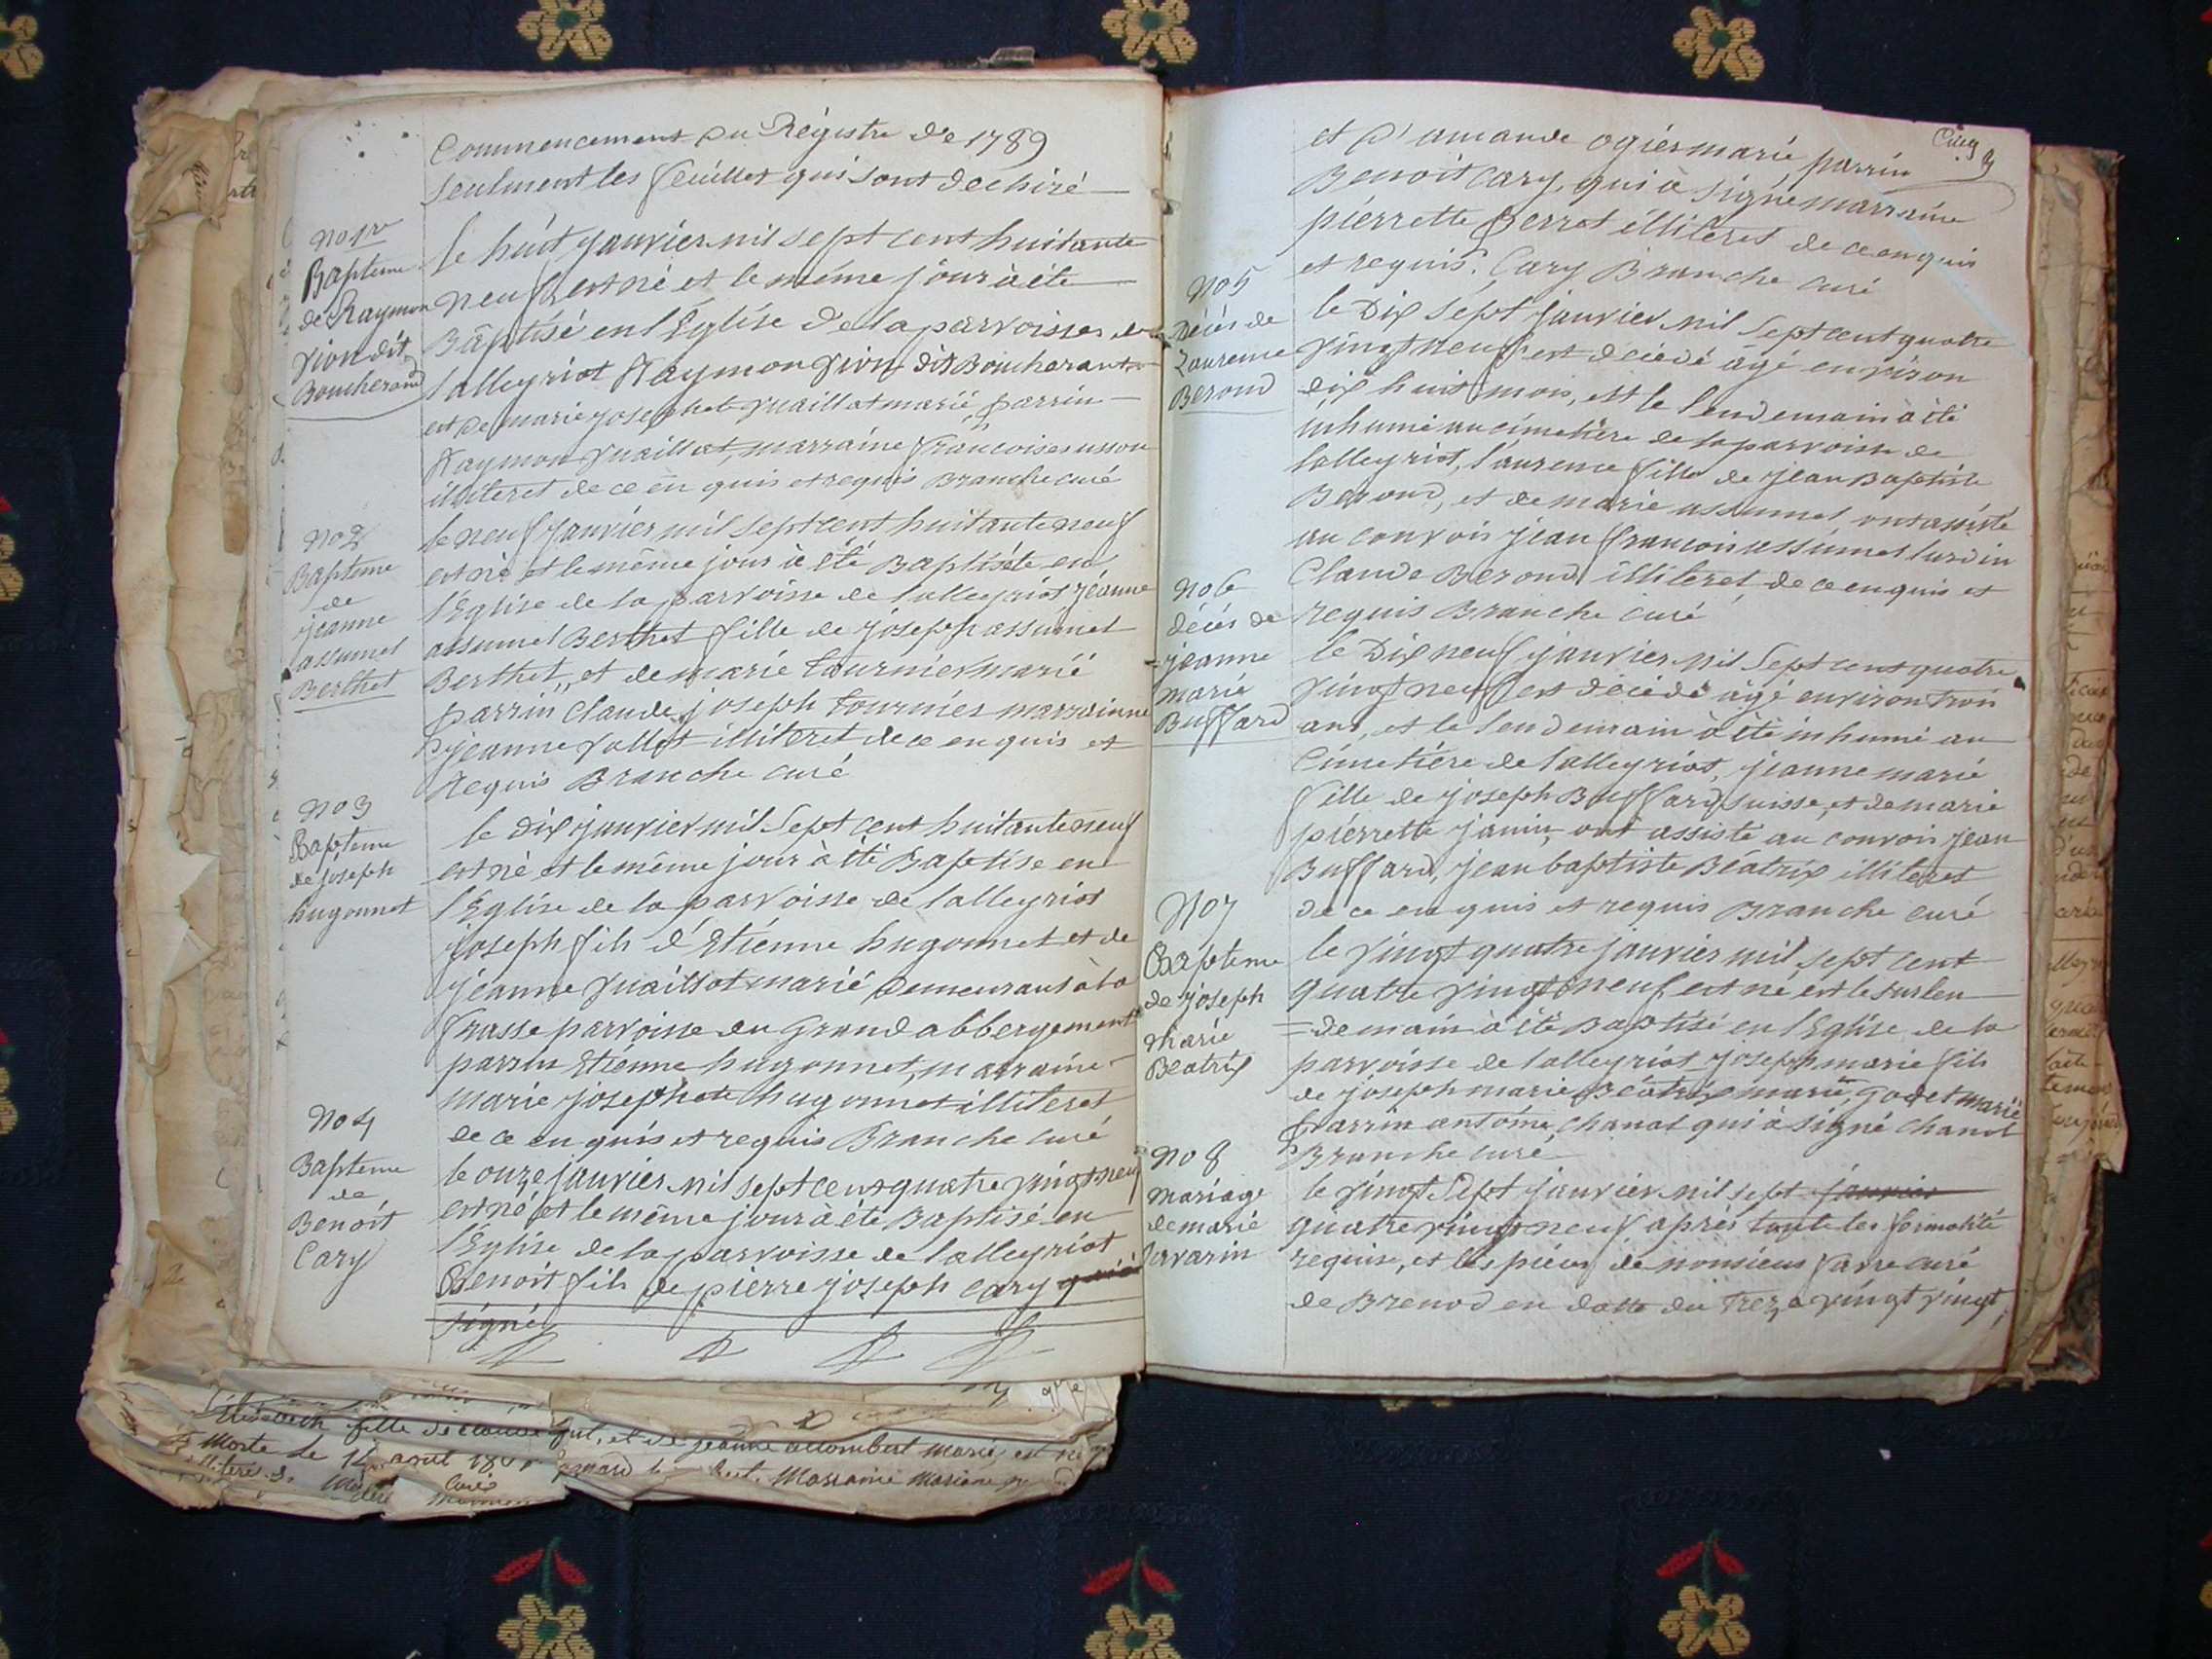 Commencement du Régistre de 1789
seulment les feuillet qui sont dechiré
No 1re
Bapteme
de Raymon
vion dit
Boucherand
le huit janvier mil sept cent huitante
neuf est né et le même jour à été
Bâptisé en l'Eglise de la parroisse de
lalleyriat Raymon vion dit Boucherant
et de marie josephete vuaillat marié, parrin
Raymon vuaillat, marraine francoise
illiteret de ce en quis et requis Branche curé
No 2
Bapteme
de
jeanne
assumel
Berthet
le neuf janvier mil sept cent huitante neuf
est né et le même jour à été Baptiséte en
l'Eglise de la parroisse de lalleyriat jéanne
assumel Berthet fille de joseph assumel
Berthet, et de marie tournier marié
parrin Claude joseph tournier marrainne
jeanne vallet illiteret de ce en quis et
Requis Branche curé
No 3
Bapteme
de joseph
hugonnet
le dix janvier mil Sept cent huitante neuf
est né et le même jour à été Baptise en
l'Eglise de la parroisse de lalleyriat
joseph fils d'Etienne hugonnet et de
jéanne vuaillat marié demeurant à la
frasse parroisse du Grand abbergement
parrin Etienne hugonnet, marraine
marie josephete hugonnet illiteret
de ce en quis et requis Branche curé
No 4
Bapteme
de
Benoit
Cary
le onze janvier mil sept cent quatre vingt neuf
est né et le même jour à été Baptisé en
l'Eglise de la parroisse de lalleyriat
Benoit fils de pierre joseph Cary qui à
signé
et d'amande ogier marié, parrin
Benoit Cary, qui à signé marraine
pierrette Perrot illiteret de ce en quis
et requis. Cary Branche curé
No 5
Décés de
Laurence
Berond
le Dix Sept janvier mil Sept cent quatre
vingt neuf est décédé âgé environ
dix huit mois, est le lendemain à été
inhumé au cimetière de la parroisse de
lalleyriat, laurence fille de jean Baptiste
Berond, et de marie assumel, ont assisté
au convoir jean francois assumel lurdin
Claude Berond illiteret, de ce en quis et
requis Branche curé
No 6
décés de
jeanne
marie
Buffard
le Dix neuf janvier mil Sept cent quatre
vingt neuf est décédé âgé environ trois
ans, et le lendemain à été inhumé au
Cimetière de lalleyriat, jeanne marie
fille de joseph Buffard suisse, et de marie
pierrette janin, ont assisté au convoir jean
Buffard, jean baptiste Béatrix illiteret
de ce en quis et requis Branche curé
No 7
Bapteme
de joseph
marie
Beatrix
le vingt quatre janvier mil sept cent
quatre vingt neuf est né est le surlen
=demain à été Baptisé en l'Eglise de la
parroisse de lalleyriat joseph marie fils
de joseph marie Béatrix marie, godet marié
parrin antoine, chanal qui à signé chanal
Branche curé
No 8
Mariage
de marie
savarin
le vingt Sept janvier mil sept janvier
quatre vingt neuf après toute les formalité
requise, et les pièces de monsieur favre curé
de Brenod en datte du treze vingt vingt,
Elisabeth fille de claude
et de jeanne allombert marié, est né
Morte le 14 avril
Marraine Mariane